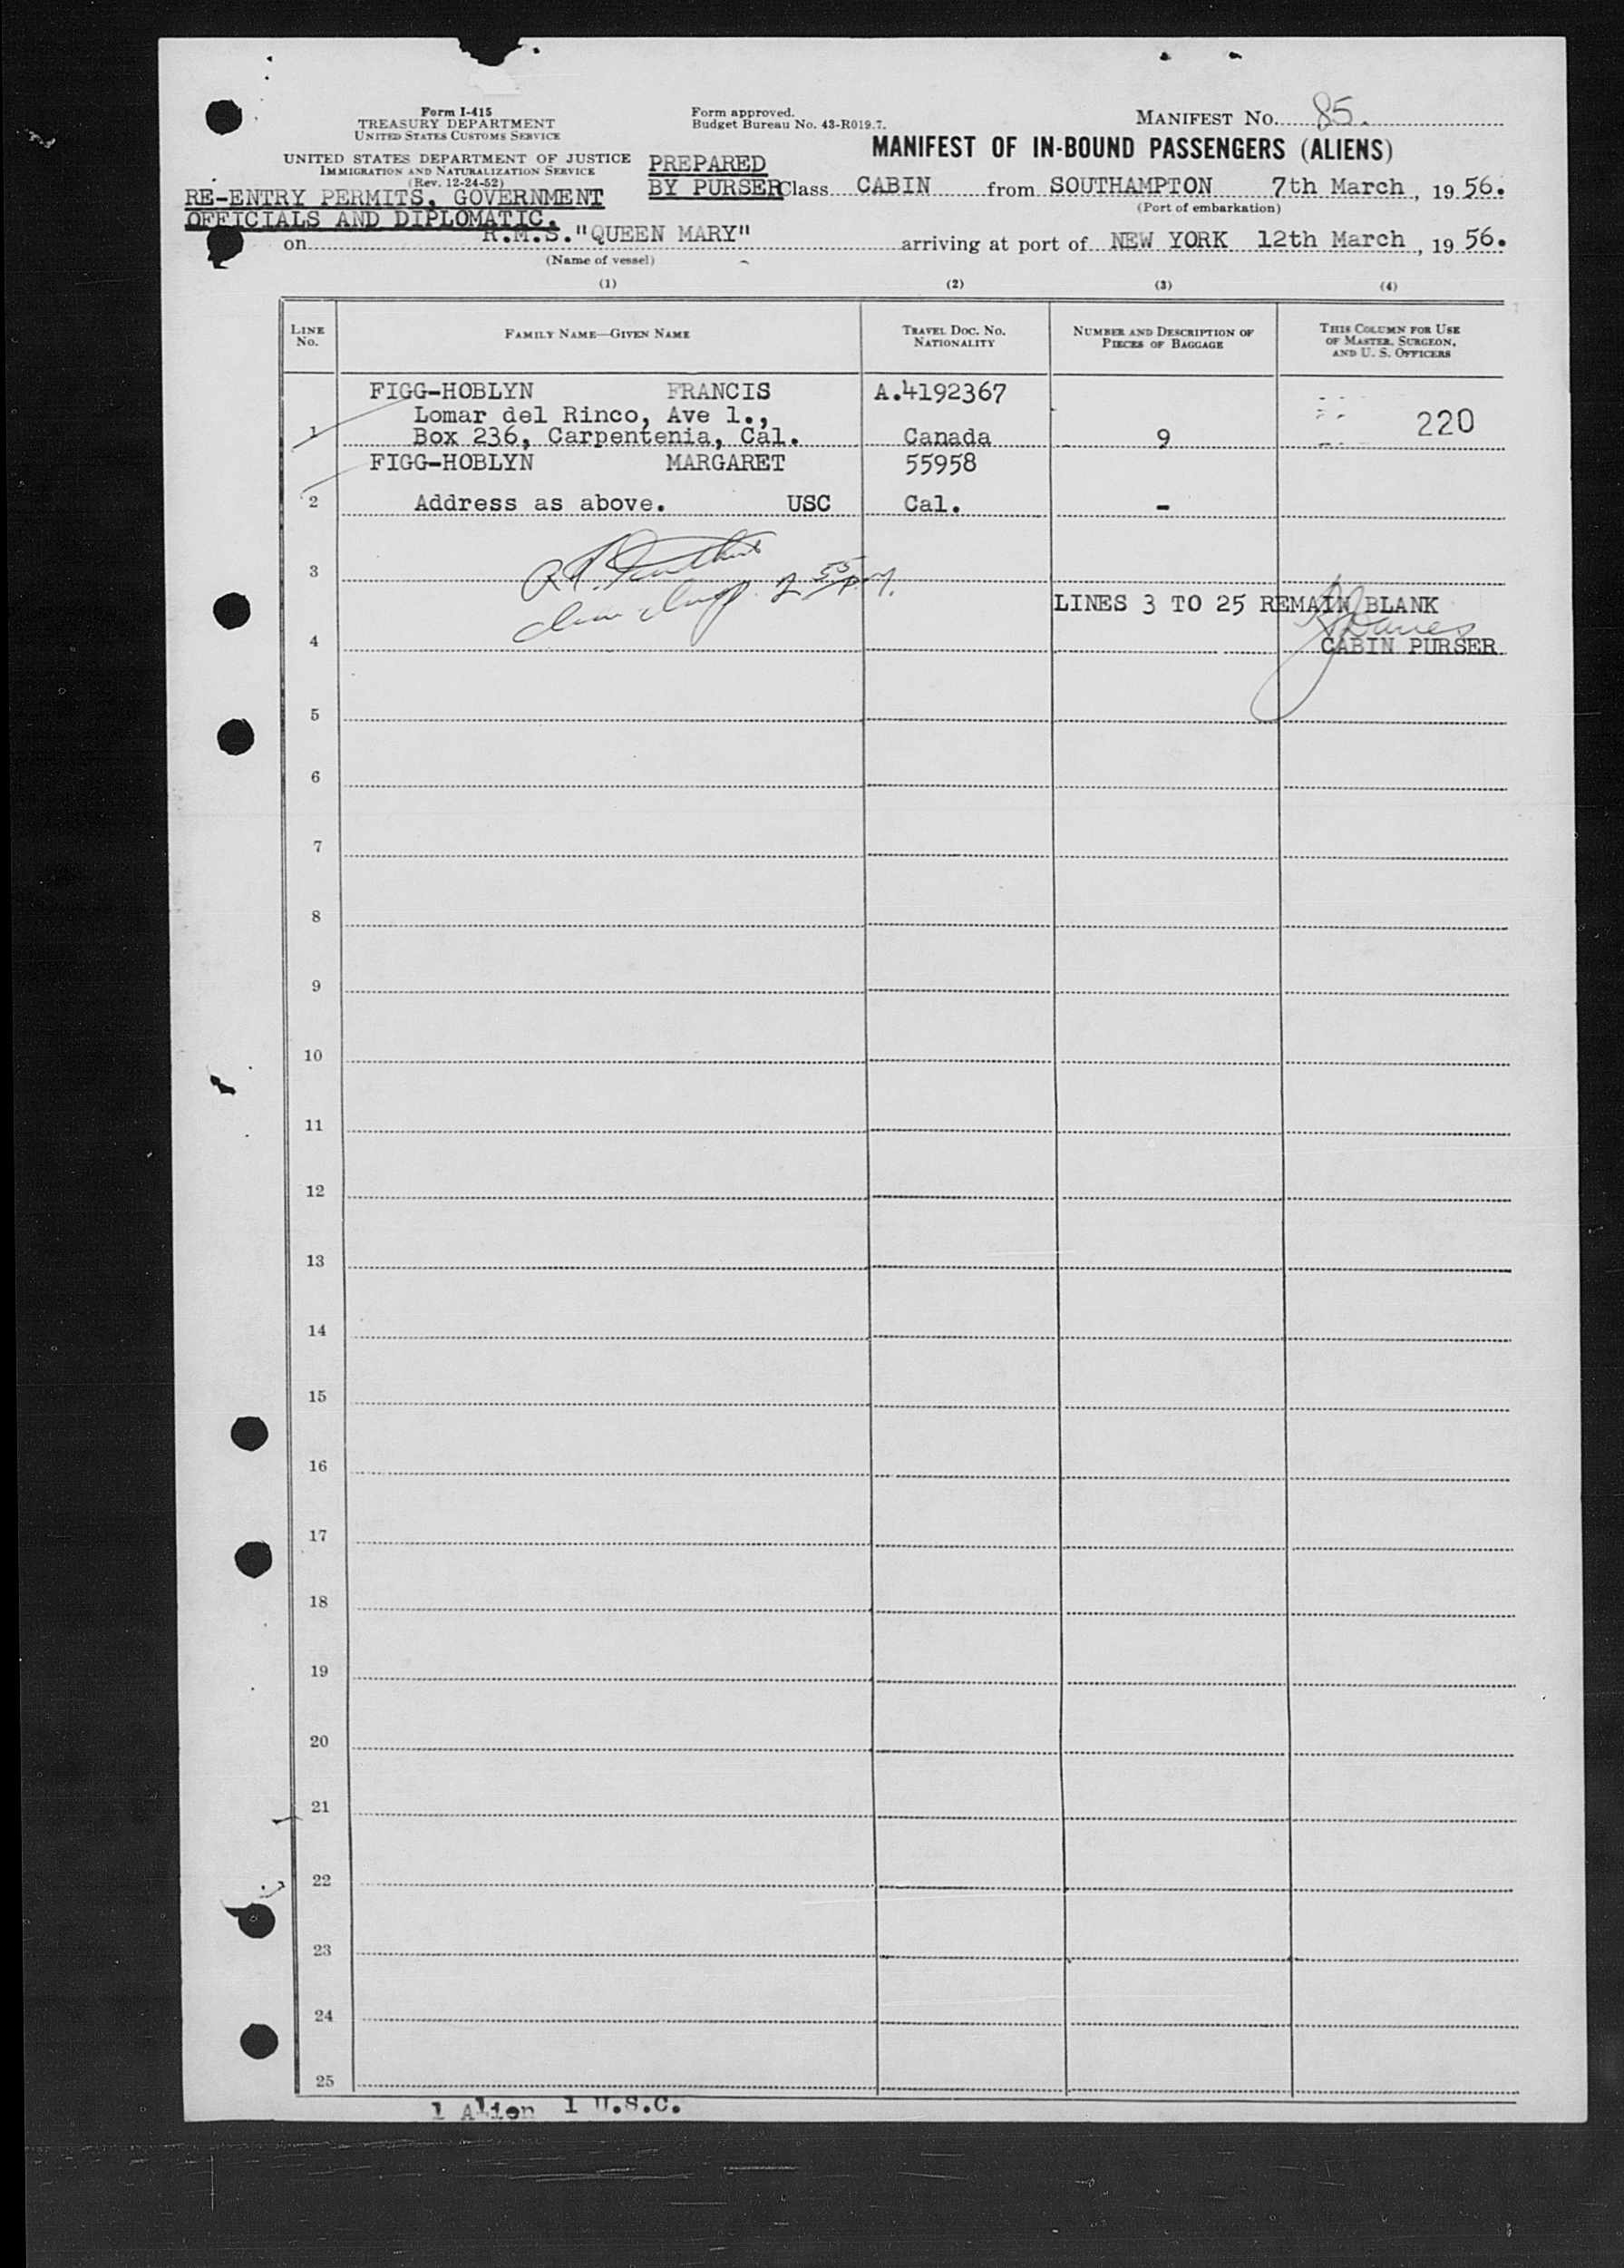 Form I-415
TREASURY DEPARTMENT
UNITED STATES CUSTOMS SERVICE
UNITED STATES DEPARTMENT OF JUSTICE
IMMIGRATION AND NATURALIZATION SERVICE
(Rev. 12-24-52)
RE-ENTRY PERMITS, GOVERNMENT
OFFICIALS AND DIPLOMATIC.
Form approved.
Budget Bureau No. 43-R019.7.
MANIFEST No. 85.
MANIFEST OF IN-BOUND PASSENGERS (ALIENS)
PREPARED
BY PURSER Class CABIN from SOUTHAMPTON 7th March, 1956.
(Port of embarkation)
on R.M.S."QUEEN MARY" arriving at port of NEW YORK 12th March, 1956.
(Name of vessel)
(1) (2) (3) (4)
LINE No. FAMILY NAME—GIVEN NAME TRAVEL DOC. NO. NATIONALITY NUMBER AND DESCRIPTION OF PIECES OF BAGGAGE THIS COLUMN FOR USE OF MASTER, SURGEON, AND U. S. OFFICERS
FIGG-HOBLYN FRANCIS A.4192367
Lomar del Rinco, Ave 1.,
220
1 Box 236, Carpentenia, Cal. Canada 9
FIGG-HOBLYN MARGARET 55958
2 Address as above. USC Cal. -
3
2 55 P.M.
LINES 3 TO 25 REMAIN BLANK
Davies
4 CABIN PURSER
5
6
7
8
9
10
11
12
13
14
15
16
17
18
19
20
21
22
23
24
25
1 Alien 1 U.S.C.